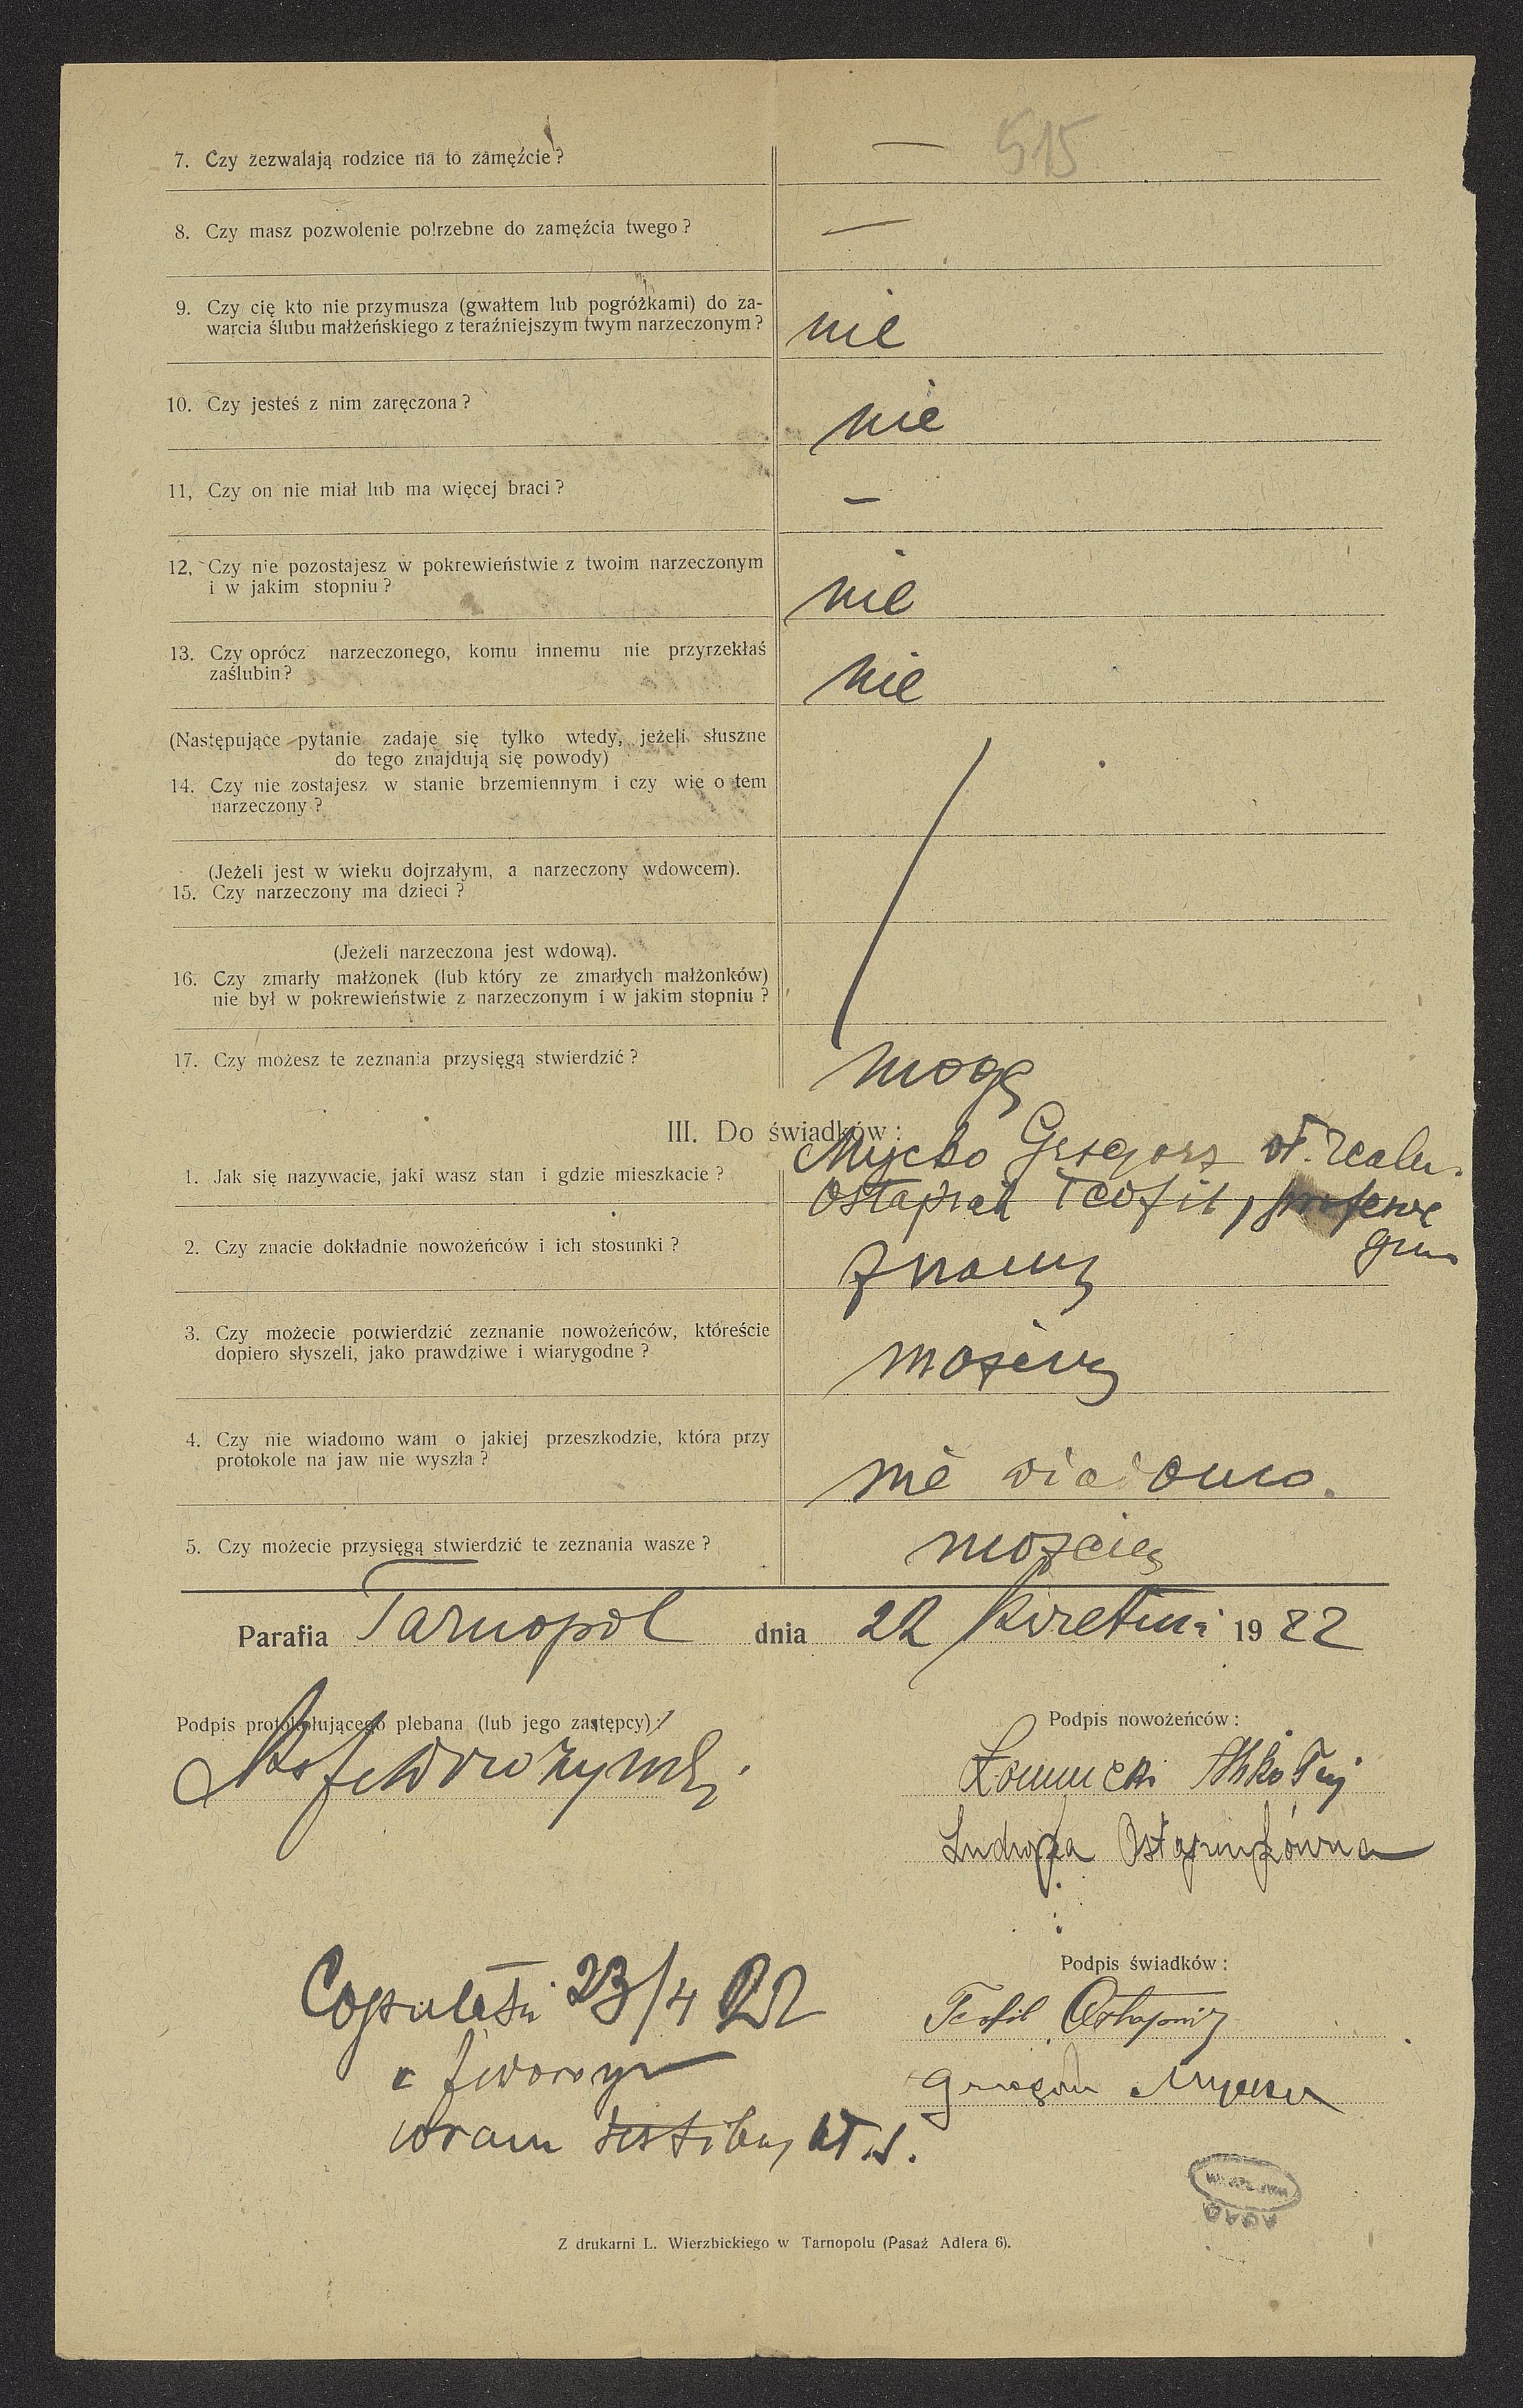 515
7. Czy zezwalają rodzice na to zamęźcie? —
8. Czy masz pozwolenie potrzebne do zamęźcia twego? —
9. Czy cię kto nie przymusza (gwałtem lub pogróżkami) do za-
warcia ślubu małżeńskiego z teraźniejszym twym narzeczonym? nie
10. Czy jesteś z nim zaręczona? nie
11, Czy on nie miał lub ma więcej braci? —
12, Czy nie pozostajesz w pokrewieństwie z twoim narzeczonym
i w jakim stopniu? nie
13. Czy oprócz narzeczonego, komu innemu nie przyrzekłaś
zaślubin? nie
(Następujące pytanie zadaje się tylko wtedy, jeżeli słuszne
do tego znajdują się powody)
14. Czy nie zostajesz w stanie brzemiennym i czy wie o tem
narzeczony?
(Jeżeli jest w wieku dojrzałym, a narzeczony wdowcem).
15. Czy narzeczony ma dzieci?
(Jeżeli narzeczona jest wdową).
16. Czy zmarły małżonek (lub który ze zmarłych małżonków)
nie był w pokrewieństwie z narzeczonym i w jakim stopniu?
17. Czy możesz te zeznania przysięgą stwierdzić? mogę
III. Do świadków:
1. Jak się nazywacie, jaki wasz stan i gdzie mieszkacie? Mycko Grzegorz wł. realn.
Teofil,
2. Czy znacie dokładnie nowożeńców i ich stosunki? znamy
3. Czy możecie potwierdzić zeznanie nowożeńców, któreście
dopiero słyszeli, jako prawdziwe i wiarygodne? możemy
4. Czy nie wiadomo wam o jakiej przeszkodzie, która przy
protokole na jaw nie wyszła? nie wiadomo.
5. Czy możecie przysięgą stwierdzić te zeznania wasze? możemy
Parafia Tarnopol dnia 22 kwietnia 1922
Podpis protokołującego plebana (lub jego zastępcy):
Podpis nowożeńców:
Łomnicki Mikołaj
Ludwika Ostapiukówna
Copulati 23/4 922
Podpis świadków:
Teofil
Grzegorz Mycko
coram testibus ut s.
Z drukarni L. Wierzbickiego w Tarnopolu (Pasaż Adlera 6).